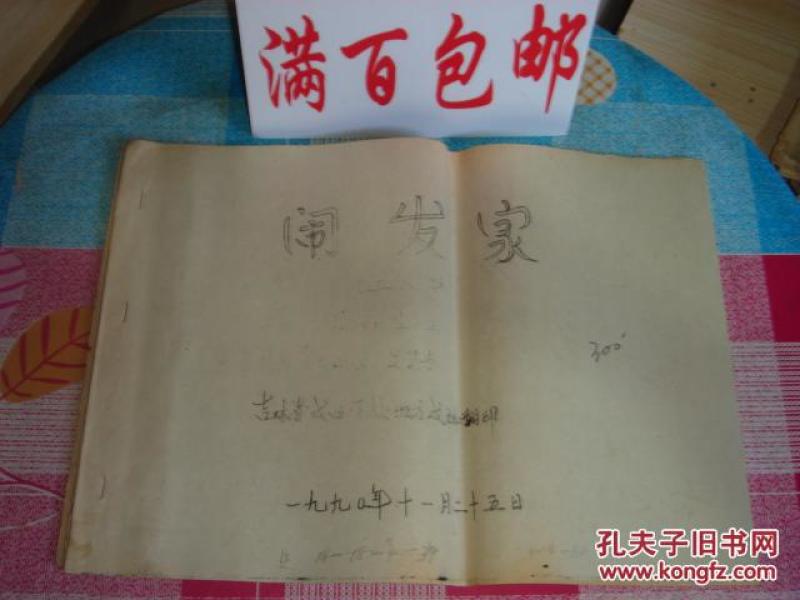 满百包邮
闹发家
300
吉林省戏曲学校地方戏科翻印
一九九〇年十一月二十五日
孔夫子旧书网
www.kongfz.com